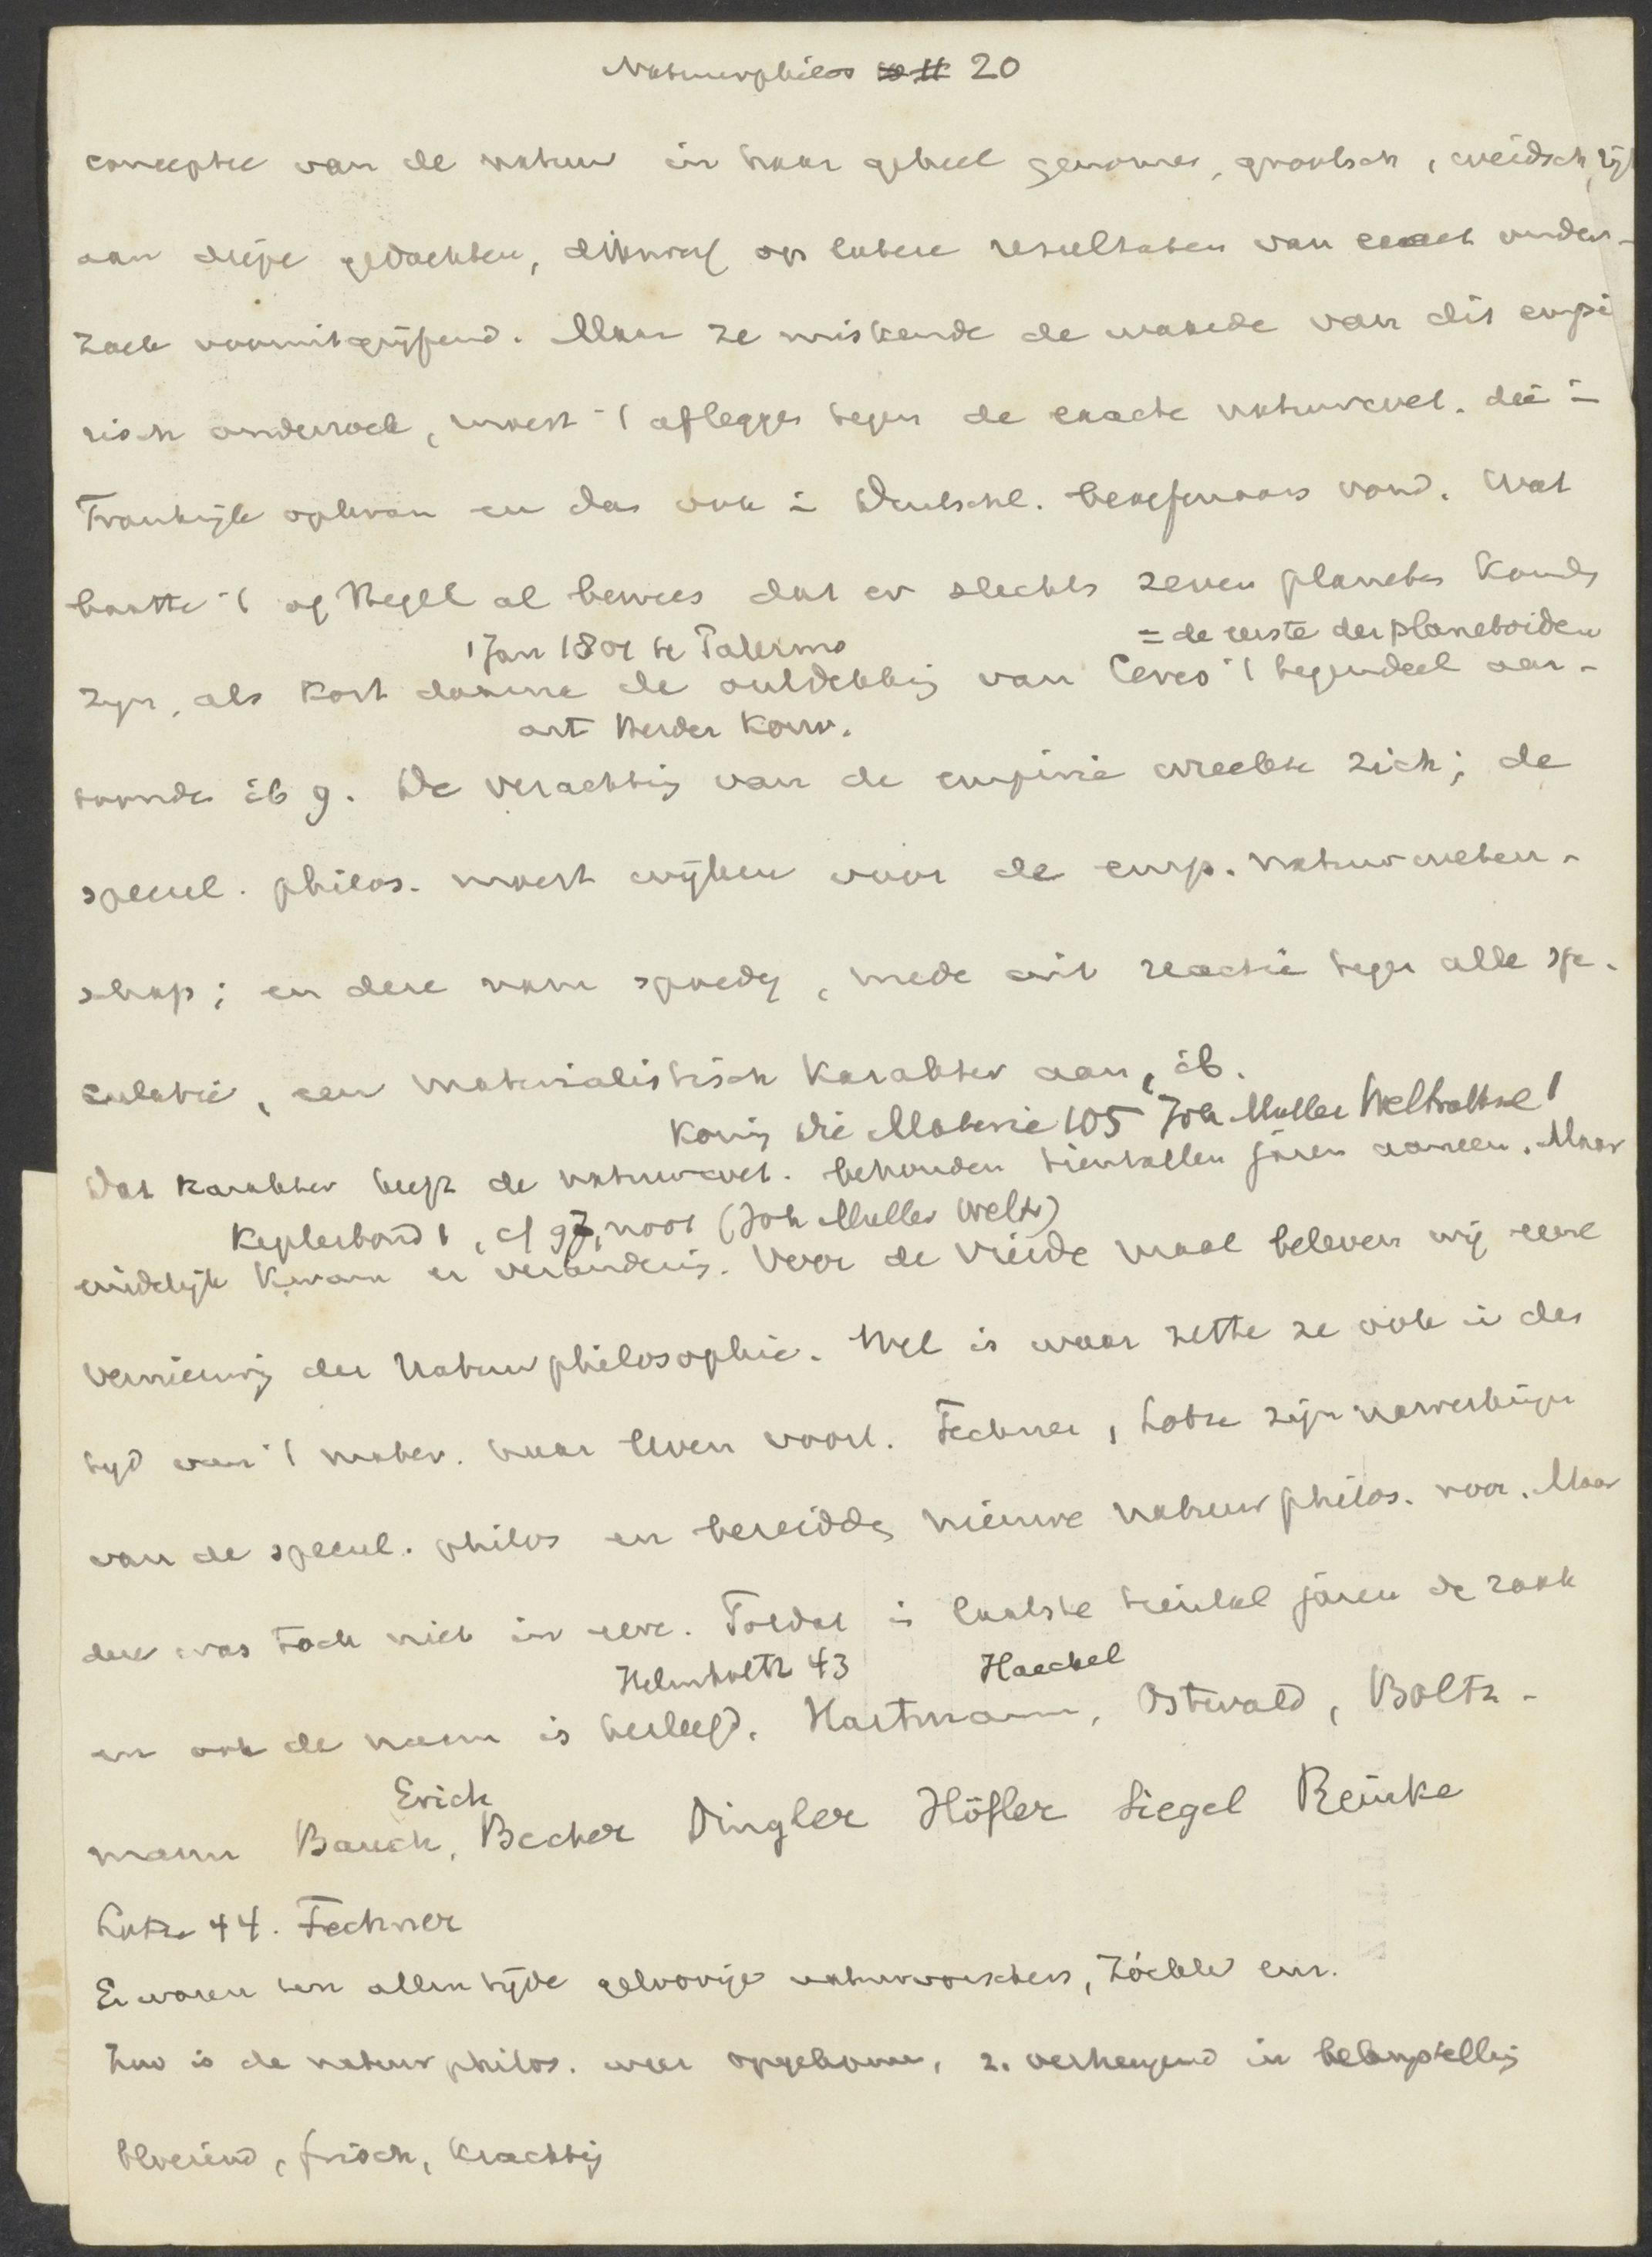 Natuurphilos 20
conceptie van de natuur in haar geheel genomen, grootsch, weidsch, rijk
aan diepe gedachten, dikwerf op latere resultaten van exact onder-
zoek vooruitgrijpend. Maar ze miskende de waarde van dit empi
risch onderzoek, moest 't afleggen tegen de exacte natuurwet. die in
Frankrijk opkwam en dan ook in Deutschl. beoefenaars vond. Wat
baatte 't of Hegel al bewees dat er slechts zeven planeten konden
1 Jan 1801 te Palermo = de eerste der planetoiden
zijn, als kort daarna de ontdekking van Ceres 't tegendeel aan-
art Herder Konv.
toonde ib 9. De verachting van de empirie wreekte zich; de
specul. philos. moest wijken voor de emp. natuurweten-
schap; en deze nam spoedig, mede uit reactie tegen alle spe-
culatie, een materialistisch karakter aan, ib.
König Die Materie 105 Joh Muller Weltraltsel 1
Dat karakter heeft de natuurwet. behouden tientallen jaren aaneen. Maar
Keplerbond 1, cf 97, noot (Joh Muller Weltr)
eindelijk kwam er verandering. Voor de vierde maal beleven wij eene
vernieuwing der Natuurphilosophie. Wel is waar zette ze ook in den
tijd van 't mater. haar leven voort. Fechner, Lotze zijn nawerkingen
van de specul. philos en bereidden nieuwe natuurphilos. voor. Maar
deze was toch niet in eere. Totdat in laatste tiental jaren de zaak
Helmholtz 43 Haeckel
en ook de naam is herleefd. Hartmann, Ostwald, Boltz-
Erich
mann Bauch, Becher Dingler Höfler Siegel Reinke
Lotze 44. Fechner
Er waren ten allen tijde geloovige natuurvorschers, Zöckler enz.
Zoo is de natuurphilos. weer opgekomen, z. verheugend in belangstelling
bloeiend, frisch, krachtig